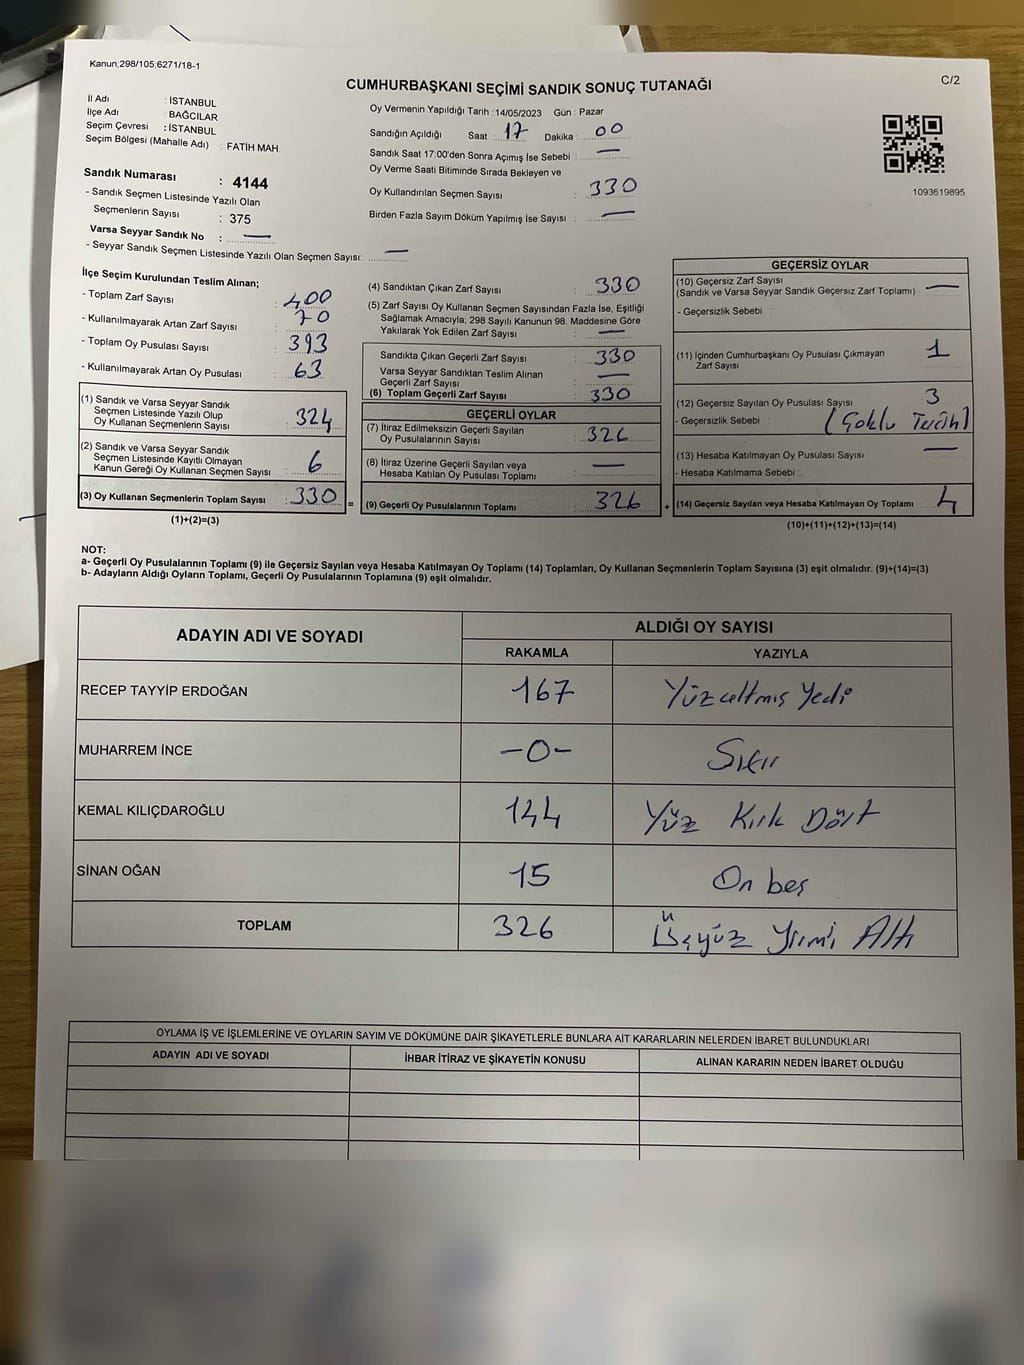 Kanun;298/105,6271/18-1
C/2
CUMHURBAŞKANI SEÇİMİ SANDIK SONUÇ TUTANAĞI
İl Adı : İSTANBUL
İlçe Adı : BAĞCILAR
Seçim Çevresi : İSTANBUL
Seçim Bölgesi (Mahalle Adı) : FATİH MAH.
Sandık Numarası : 4144
- Sandık Seçmen Listesinde Yazılı Olan
Seçmenlerin Sayısı : 375
Varsa Seyyar Sandık No : —
- Seyyar Sandık Seçmen Listesinde Yazılı Olan Seçmen Sayısı: —
Oy Vermenin Yapıldığı Tarih : 14/05/2023 Gün : Pazar
Sandığın Açıldığı Saat : 17 Dakika : 00
Sandık Saat 17:00'den Sonra Açımış İse Sebebi : —
Oy Verme Saati Bitiminde Sırada Bekleyen ve
Oy Kullandırılan Seçmen Sayısı : 330
Birden Fazla Sayım Döküm Yapılmış İse Sayısı : —
1093619895
İlçe Seçim Kurulundan Teslim Alınan;
- Toplam Zarf Sayısı : 400
- Kullanılmayarak Artan Zarf Sayısı : 70
- Toplam Oy Pusulası Sayısı : 393
- Kullanılmayarak Artan Oy Pusulası : 63
(1) Sandık ve Varsa Seyyar Sandık
Seçmen Listesinde Yazılı Olup
Oy Kullanan Seçmenlerin Sayısı : 324
(2) Sandık ve Varsa Seyyar Sandık
Seçmen Listesinde Kayıtlı Olmayan
Kanun Gereği Oy Kullanan Seçmen Sayısı : 6
(3) Oy Kullanan Seçmenlerin Toplam Sayısı : 330 =
(1)+(2)=(3)
(4) Sandıktan Çıkan Zarf Sayısı : 330
(5) Zarf Sayısı Oy Kullanan Seçmen Sayısından Fazla İse, Eşitliği
Sağlamak Amacıyla; 298 Sayılı Kanunun 98. Maddesine Göre
Yakılarak Yok Edilen Zarf Sayısı : —
Sandıkta Çıkan Geçerli Zarf Sayısı : 330
Varsa Seyyar Sandıktan Teslim Alınan
Geçerli Zarf Sayısı : —
(6) Toplam Geçerli Zarf Sayısı : 330
GEÇERLİ OYLAR
(7) İtiraz Edilmeksizin Geçerli Sayılan
Oy Pusulalarının Sayısı : 326
(8) İtiraz Üzerine Geçerli Sayılan veya
Hesaba Katılan Oy Pusulaları Toplamı : —
(9) Geçerli Oy Pusulalarının Toplamı 326 +
GEÇERSİZ OYLAR
(10) Geçersiz Zarf Sayısı
(Sandık ve Varsa Seyyar Sandık Geçersiz Zarf Toplamı) : —
- Geçersizlik Sebebi :
(11) İçinden Cumhurbaşkanı Oy Pusulası Çıkmayan
Zarf Sayısı 1
(12) Geçersiz Sayılan Oy Pusulası Sayısı : 3
- Geçersizlik Sebebi : (Çoklu Tercih)
(13) Hesaba Katılmayan Oy Pusulası Sayısı : —
- Hesaba Katılmama Sebebi :
(14) Geçersiz Sayılan veya Hesaba Katılmayan Oy Toplamı 4
(10)+(11)+(12)+(13)=(14)
NOT:
a- Geçerli Oy Pusulalarının Toplamı (9) ile Geçersiz Sayılan veya Hesaba Katılmayan Oy Toplamı (14) Toplamları, Oy Kullanan Seçmenlerin Toplam Sayısına (3) eşit olmalıdır. (9)+(14)=(3)
b- Adayların Aldığı Oyların Toplamı, Geçerli Oy Pusulalarının Toplamına (9) eşit olmalıdır.
ADAYIN ADI VE SOYADI ALDIĞI OY SAYISI
RAKAMLA YAZIYLA
RECEP TAYYİP ERDOĞAN 167 Yüzaltmış Yedi
MUHARREM İNCE -0- Sıfır
KEMAL KILIÇDAROĞLU 144 Yüz Kırk Dört
SİNAN OĞAN 15 On beş
TOPLAM 326 Üçyüz Yirmi Altı
OYLAMA İŞ VE İŞLEMLERİNE VE OYLARIN SAYIM VE DÖKÜMÜNE DAİR ŞİKAYETLERLE BUNLARA AİT KARARLARIN NELERDEN İBARET BULUNDUKLARI
ADAYIN ADI VE SOYADI İHBAR İTİRAZ VE ŞİKAYETİN KONUSU ALINAN KARARIN NEDEN İBARET OLDUĞU